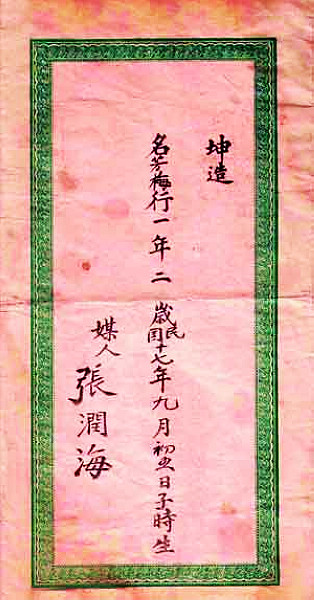 坤造
名芳梅行一年二歲民国十七年九月初五日子時生
媒人張潤海